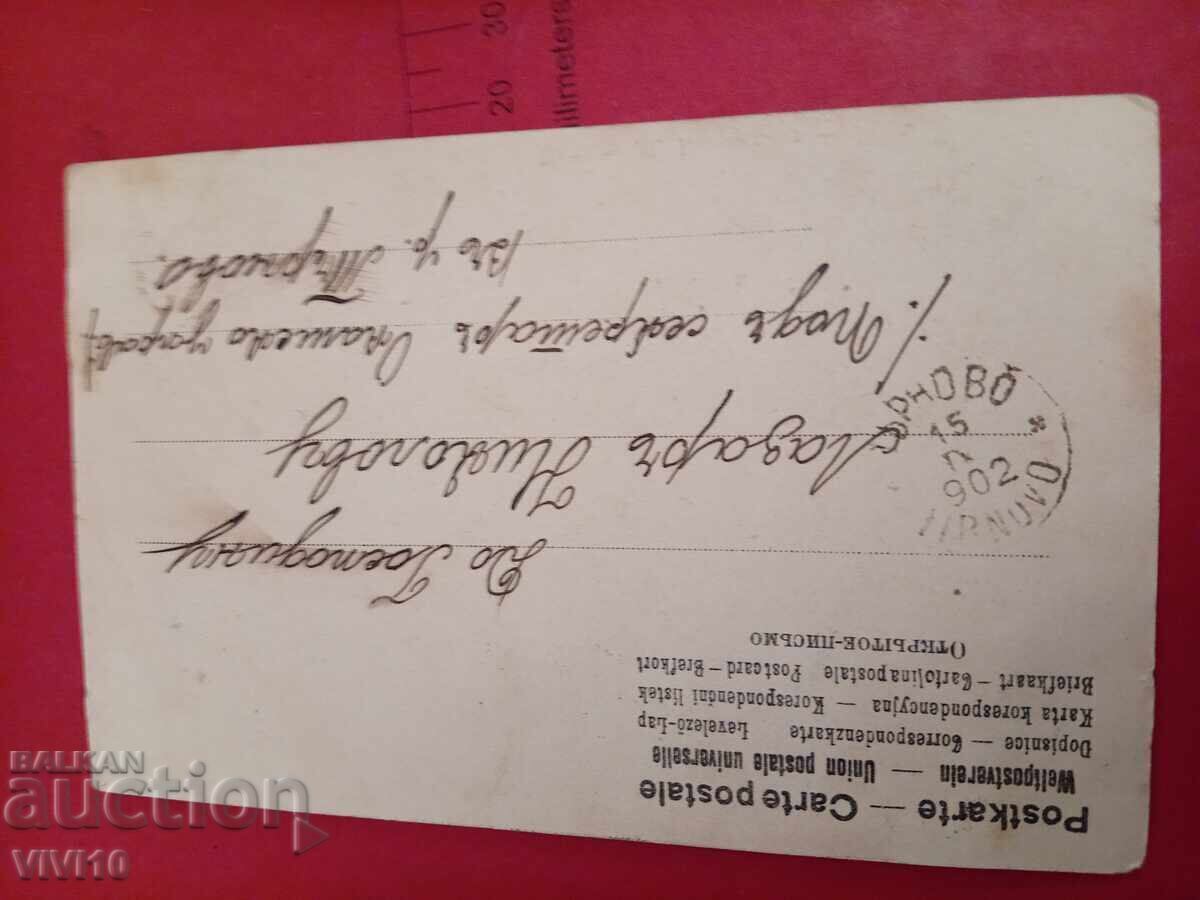 Postkarte — Carte postale
Weltpostverein — Union postale universelle
Dopisnice — Correspondenzkarte Levelező-Lap
Karta korespondencyjna — Korespondenční lístek
Briefkaart — Cartolina postale Postcard — Brefkort
ОТКРЫТОЕ-ПИСЬМО
До Господину
Лазаръ Николову
Подъ секретаръ
Въ гр. Търново.
ЪРНОВО
15
902
TIRNOVO
20 30
illimeters
BALKAN
auction
VIVI10